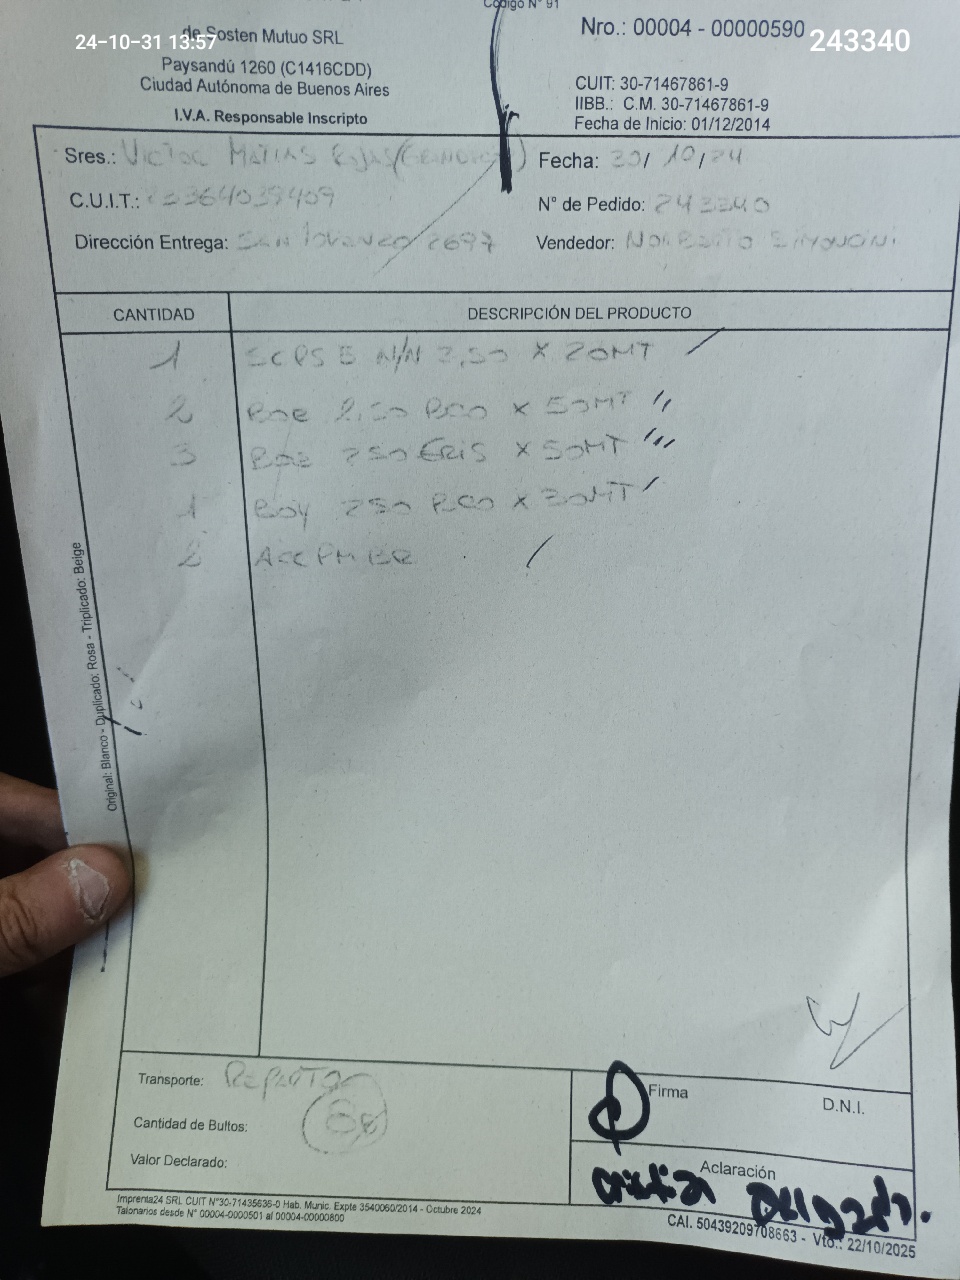 Código N° 91
24-10-31 13:57
243340
de Sosten Mutuo SRL
Nro.: 00004 - 00000590
Paysandú 1260 (C1416CDD)
Ciudad Autónoma de Buenos Aires
I.V.A. Responsable Inscripto
CUIT: 30-71467861-9
IIBB.: C.M. 30-71467861-9
Fecha de Inicio: 01/12/2014
Sres.: Victor Matias
Fecha: 30/10/24
C.U.I.T.:
N° de Pedido: 243340
Dirección Entrega: San Lorenzo 2697
Vendedor: Norberto Simoncini
CANTIDAD
DESCRIPCIÓN DEL PRODUCTO
1 N/N 2,50 X 20MT
2 2.50 BCO X 50MT
3 250 GRIS X 50MT
1 250 BCO X 30MT
2 ACC PM
Original: Blanco - Duplicado: Rosa - Triplicado: Beige
Transporte:
Cantidad de Bultos:
Valor Declarado:
Firma
D.N.I.
Aclaración
Cristian Delgado.
Imprenta24 SRL CUIT N°30-71435636-0 Hab. Munic. Expte 3540060/2014 - Octubre 2024
Talonarios desde N° 00004-0000501 al 00004-00000800
CAI. 50439209708663 - Vto.: 22/10/2025